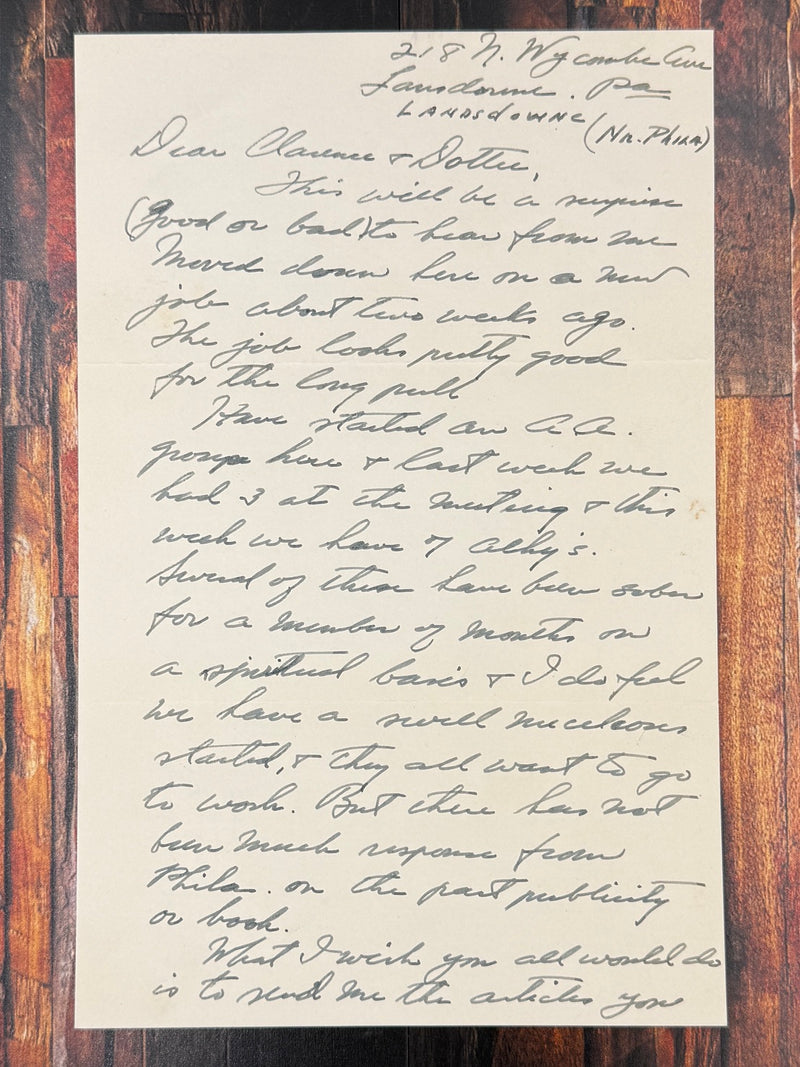 218 N. Wycombe Ave
Lansdowne. Pa
LANDSDOWNE
(NR. PHILA)
Dear Clarence & Dottie,
This will be a surprise
(good or bad) to hear from me
Moved down here on a new
job about two weeks ago.
The job looks pretty good
for the long pull
Have started an A.A.
group here & last week we
had 3 at the meeting & this
week we have 7 alky's.
Several of these have been sober
for a number of months on
a spiritual basis & I do feel
we have a swell nuculous
started, & they all want to go
to work. But there has not
been much response from
Phila. on the past publicity
or book.
What I wish you all would do
is to send me the articles you